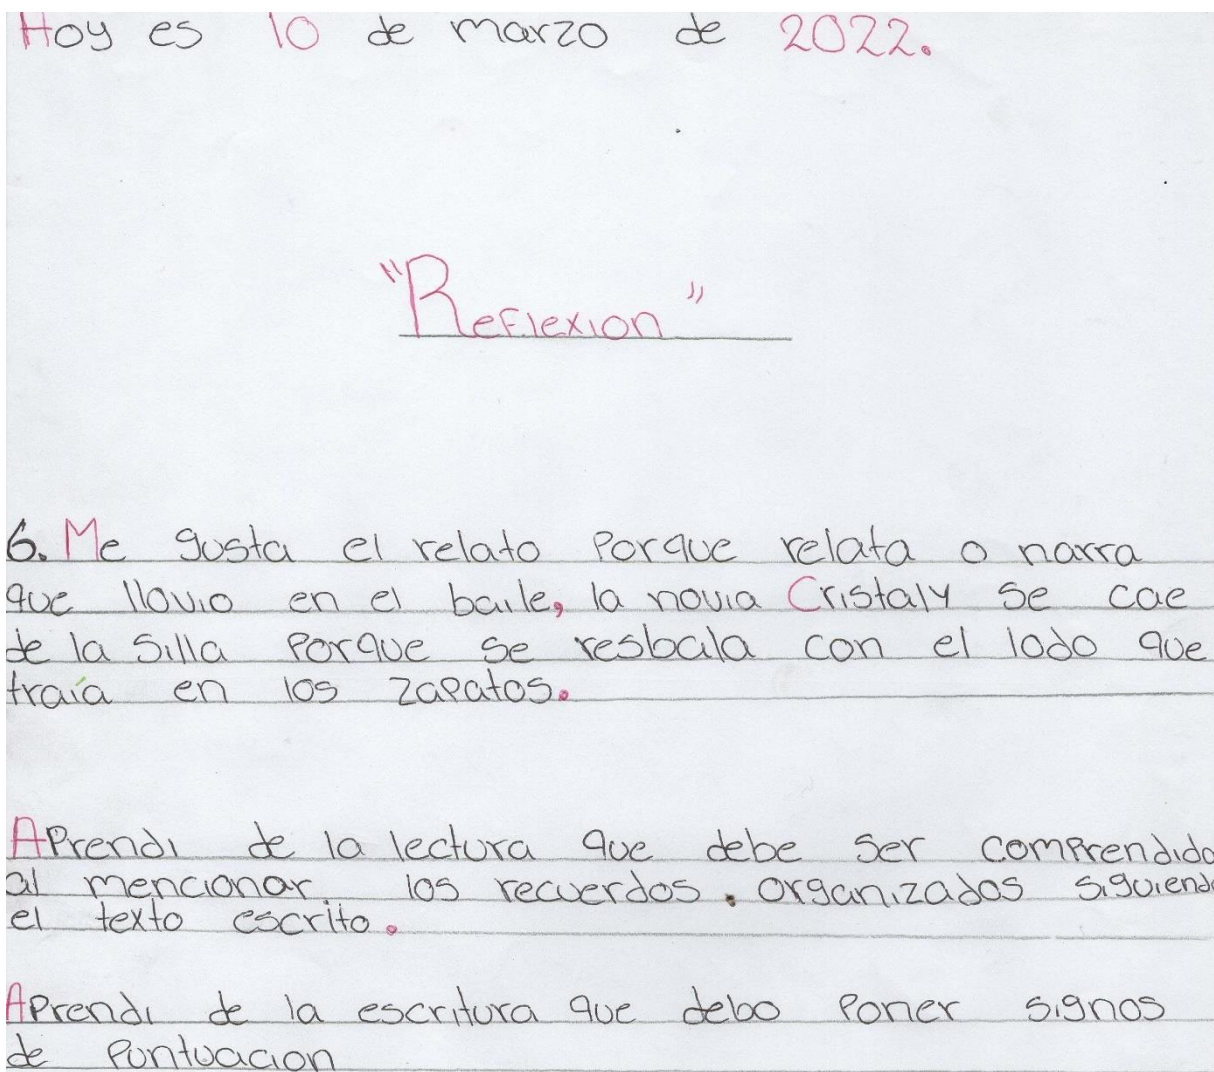 Hoy es 10 de marzo de 2022.
"Reflexion"
6. Me gusta el relato porque relata o narra
que llovio en el baile, la novia Cristaly se cae
de la silla porque se resbala con el lodo que
traía en los zapatos.
Aprendi de la lectura que debe ser comprendido
al mencionar los recuerdos. organizados siguiendo
el texto escrito.
Aprendi de la escritura que debo poner signos
de puntuacion